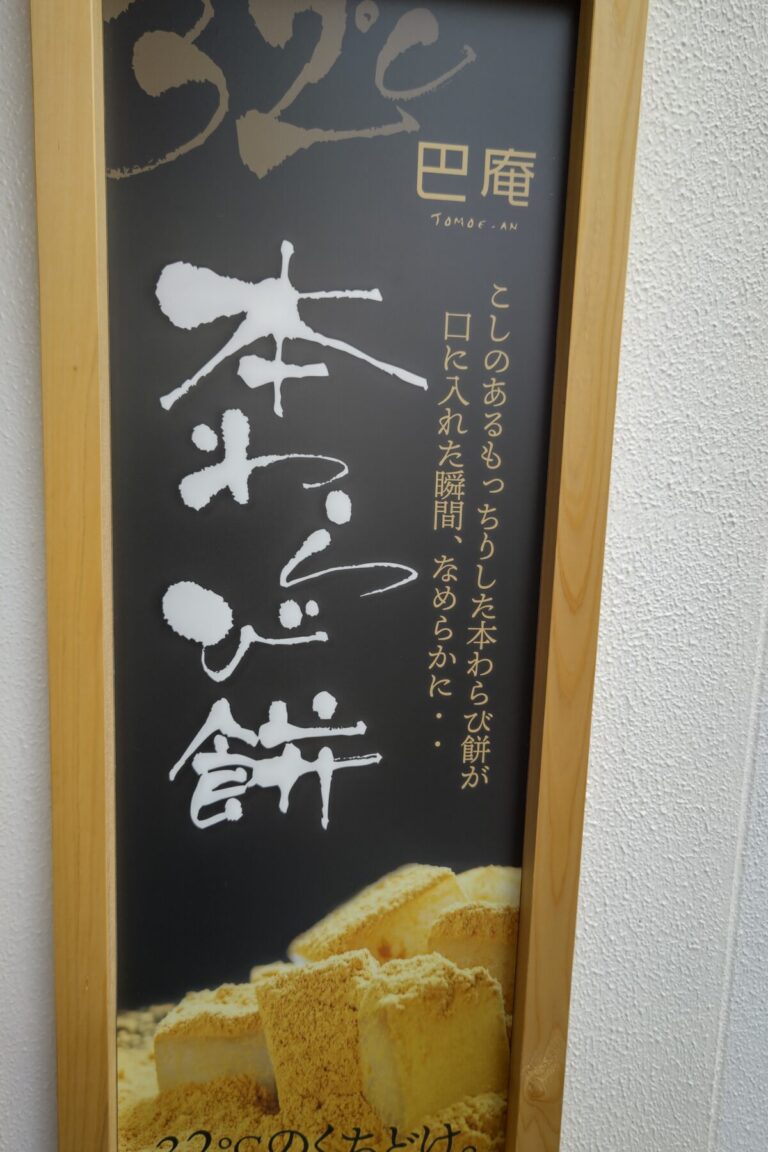 32℃
巴庵
TOMOE-AN
こしのあるもっちりした本わらび餅が
口に入れた瞬間、なめらかに・・
本わらび餅
32℃のくちどけ。